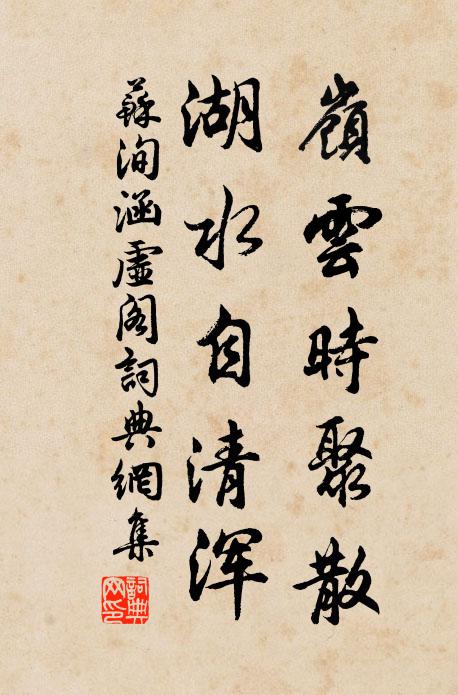 嶺雲時聚散
湖水自清浑
蘇洵涵虛閣詞典網集
詞典網印